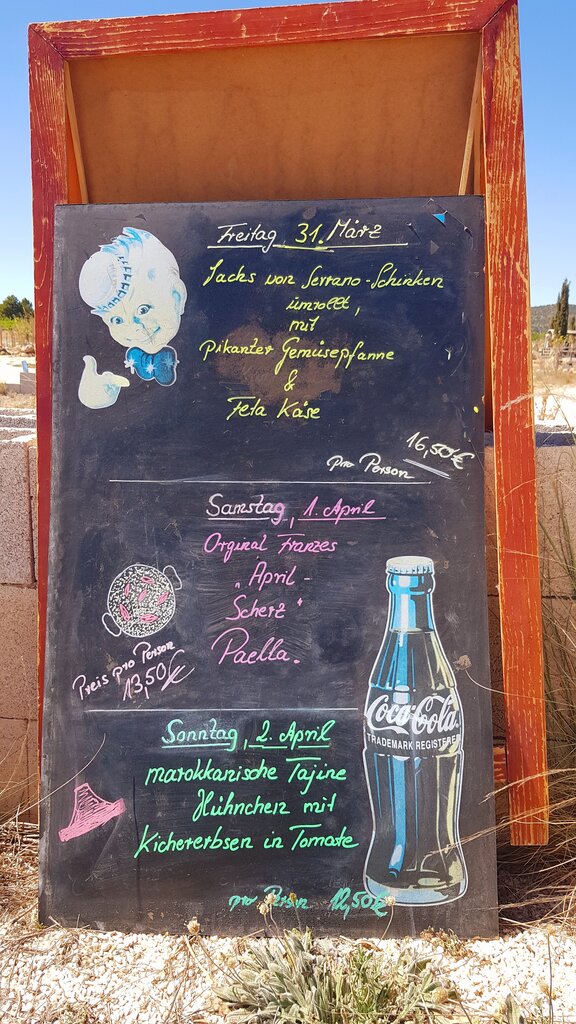 Freitag 31. März
Lachs von Serrano-Schinken
umrollt,
mit
pikanter Gemüsepfanne
&
Feta Käse
pro Person 16,50€
Samstag, 1. April
Orginal Franzes
„April-
Scherz“
Paella.
Preis pro Person
13,50€
Sonntag, 2. April
marokkanische Tajine
Hühnchen mit
Kichererbsen in Tomate
pro Person 12,50€
Coca-Cola
TRADEMARK REGISTERED